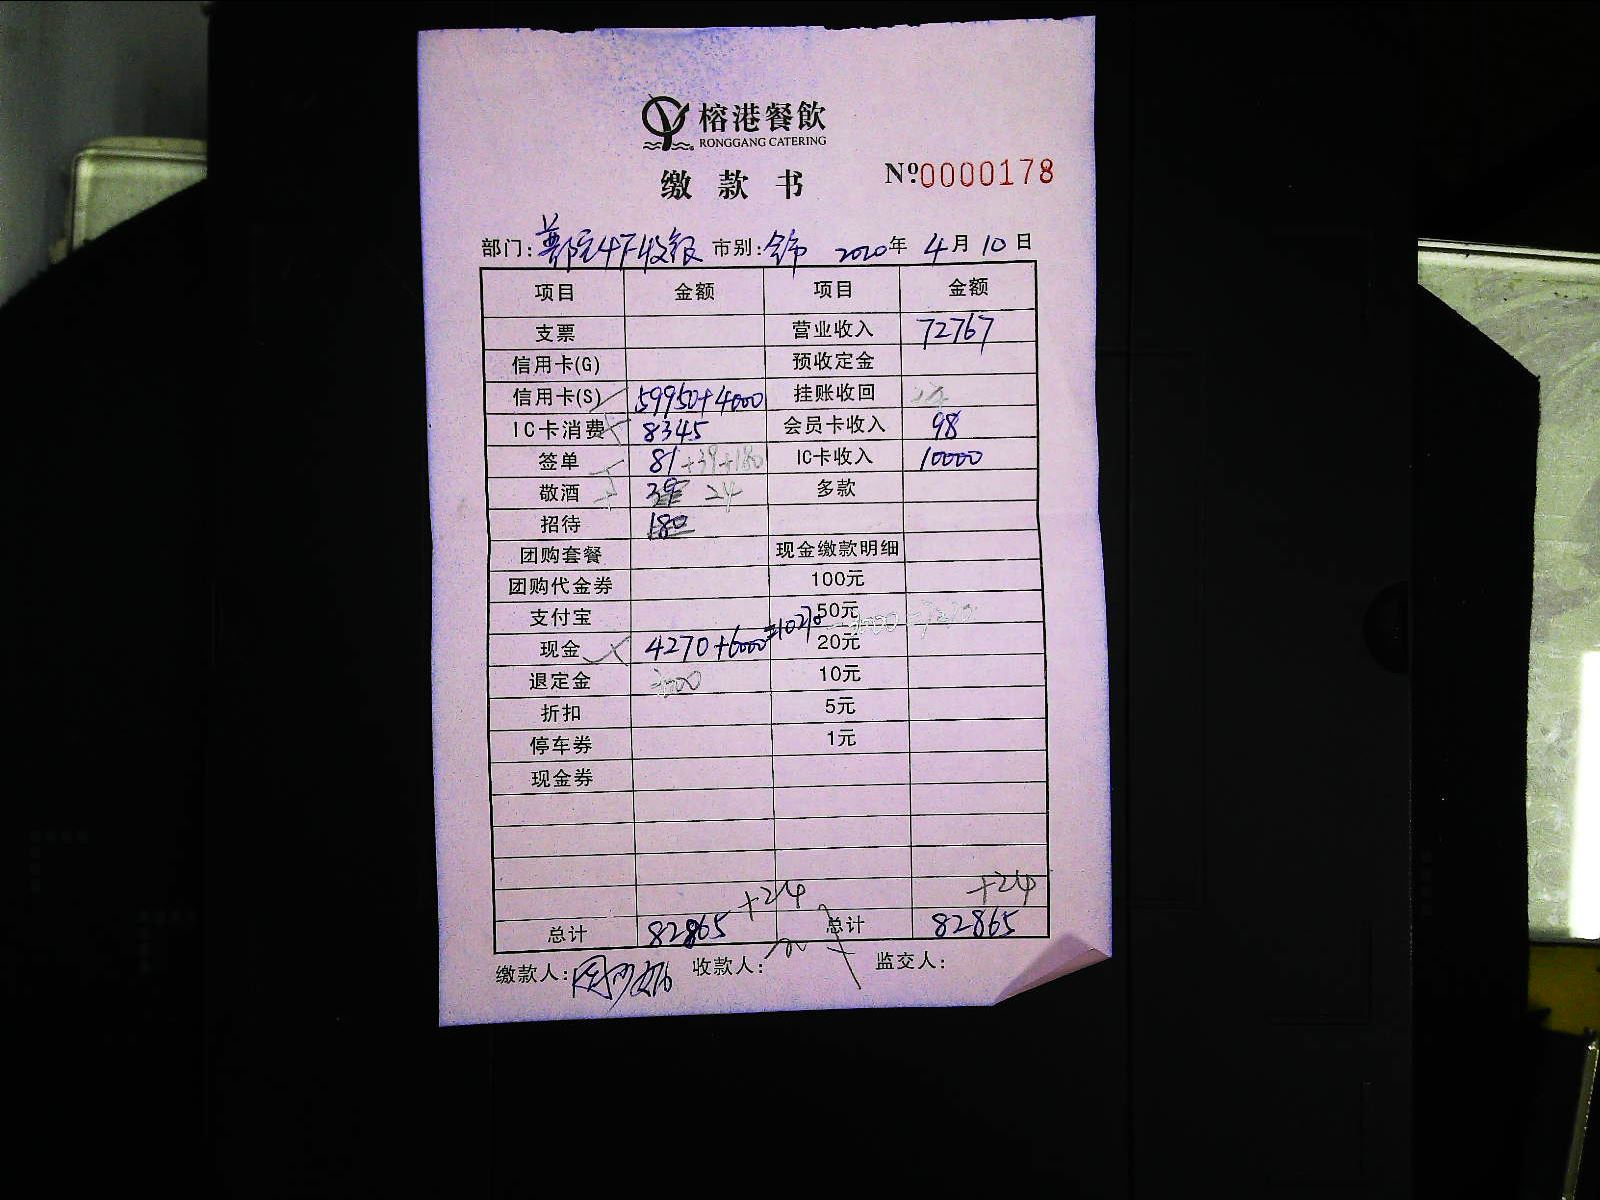 榕港餐飲
RONGGANG CATERING
缴款书
№0000178
部门: 收银 市别: 2020年 4月 10日
项目 金额 项目 金额
支票 营业收入 72767
信用卡(G) 预收定金
信用卡(S) 59950+4000 挂账收回
IC卡消费 8345 会员卡收入 98
签单 81 +39+180 IC卡收入 10000
敬酒 39 24 多款
招待 180
团购套餐 现金缴款明细
团购代金券 100元
支付宝 50元
现金 4270+6000=10270 20元
退定金 10元
折扣 5元
停车券 1元
现金券
+24 +24
总计 82865 总计 82865
缴款人: 收款人: 监交人: